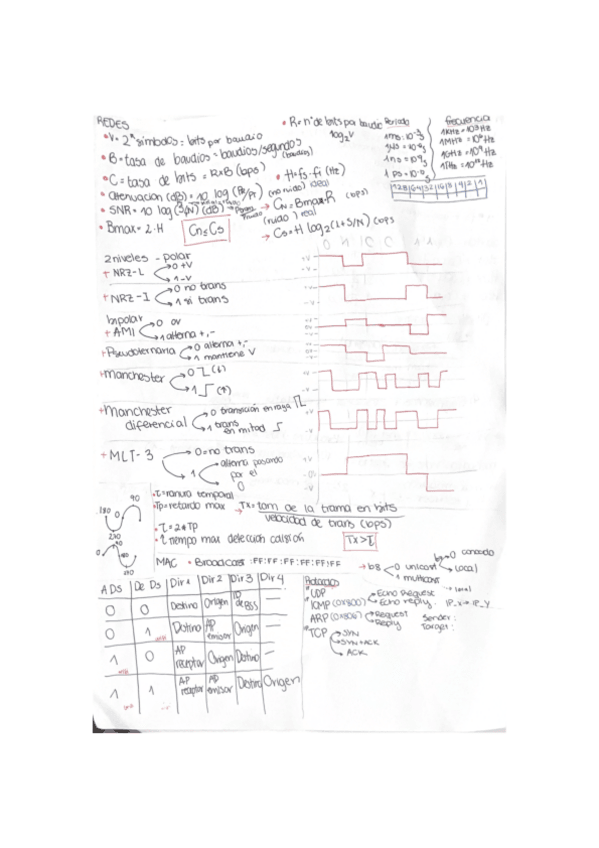 REDES
• V = 2^R símbolos: bits por baudio
• R = nº de bits por baudio
log2V
• B = tasa de baudios = baudios/segundos
(baudios)
• C = tasa de bits = R×B (bps)
• H = fs - fi (Hz)
• Atenuación (dB) = 10 log (Pe/Pr) (no ruido) ideal
• SNR = 10 log (S/N) (dB)
→ CN = Bmax·R (bps)
(ruido) real
• Bmax = 2·H
Cn≤Cs
→ Cs = H log2(1+S/N) bps
Periodo
1ms: 10⁻³s
1ns = 10⁻⁹s
frecuencia
1KHz = 10³Hz
1MHz = 10⁶Hz
1GHz = 10⁹Hz
1THz = 10¹²Hz
128 64 32 16 8 4 2 1
2 niveles - polar
+ NRZ-L
0 +V
1 -V
+ NRZ-I
0 no trans
1 si trans
bipolar
+ AMI
0 0V
1 alterna +,-
+ Pseudoternaria
0 alterna +,-
1 mantiene V
+ Manchester
0
1
+ Manchester
diferencial
0 transición en raya
1 trans
en mitad
+ MLT-3
0 = no trans
1
alterna pasando
por el
0
0 1 0 0 1 1
+V
-V
+V
-V
+V
0V
-V
+V
0V
-V
+V
-V
+V
-V
+V
0V
-V
90
180 0
270
90
0
180
• τ = ranura temporal
• Tp = retardo max
→ Tx = tam de la trama en bits
velocidad de trans (bps)
• τ = 2*Tp
• τ tiempo max deteccion colisión
Tx>τ
MAC • Broadcast: FF:FF:FF:FF:FF:FF
→ b8
0 unicast
1 multicast
b7
0 conocido
1 local
A DS De DS Dir 1 Dir 2 Dir 3 Dir 4
0 0 Destino Origen ID de BSS —
0 1 Destino AP emisor Origen —
1 0 AP receptor Origen Destino —
1 1 AP receptor AP emisor Destino Origen
Protocolos
UDP
ICMP (0x800)
Echo Request
Echo reply
ARP (0x806)
Request
Reply
Sender:
Target:
TCP
SYN
SYN+ACK
ACK